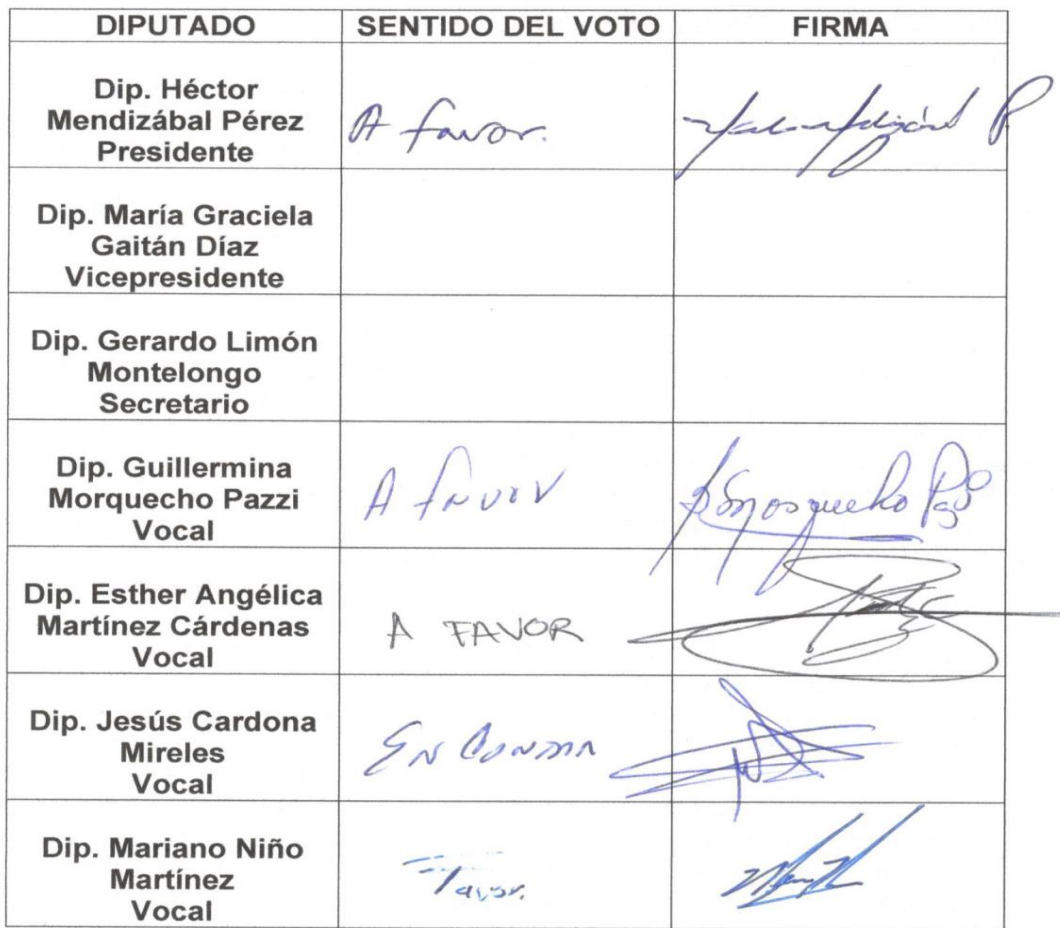 DIPUTADO SENTIDO DEL VOTO FIRMA
Dip. Héctor
Mendizábal Pérez
Presidente
A favor.
Dip. María Graciela
Gaitán Díaz
Vicepresidente
Dip. Gerardo Limón
Montelongo
Secretario
Dip. Guillermina
Morquecho Pazzi
Vocal
A favor
Dip. Esther Angélica
Martínez Cárdenas
Vocal
A FAVOR
Dip. Jesús Cardona
Mireles
Vocal
En Contra
Dip. Mariano Niño
Martínez
Vocal
Favor.